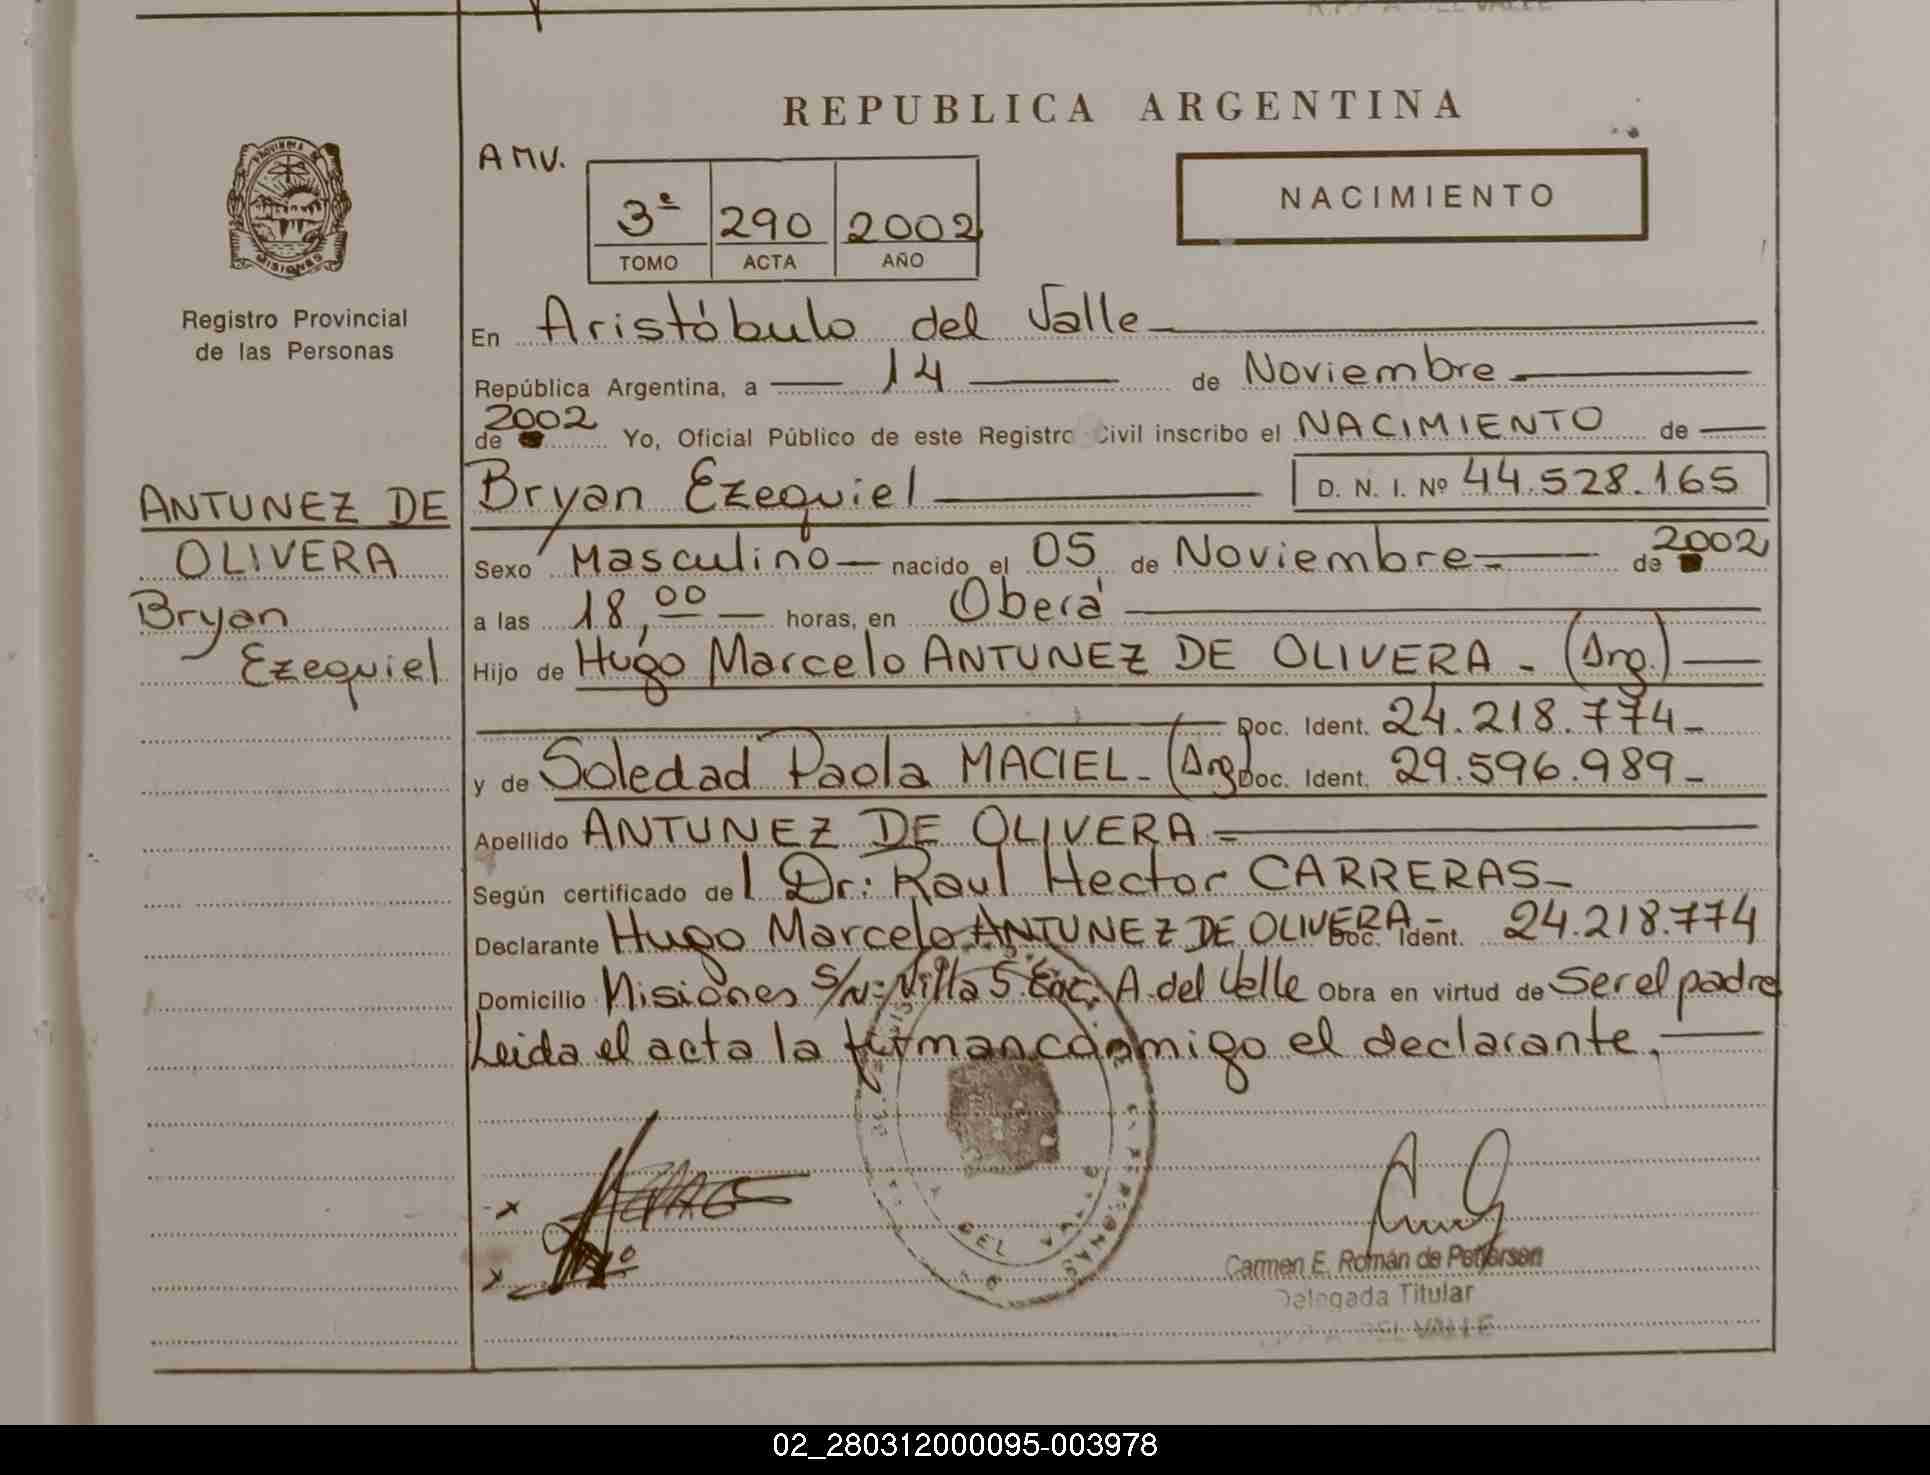 REPUBLICA ARGENTINA
AMV.
NACIMIENTO
3º 290 2002
TOMO ACTA AÑO
PROVINCIA DE MISIONES
Registro Provincial
de las Personas
En Aristóbulo del Valle
República Argentina, a 14 de Noviembre
de 2002 Yo, Oficial Público de este Registro Civil inscribo el NACIMIENTO de
Bryan Ezequiel D. N. I. Nº 44.528.165
ANTUNEZ DE
OLIVERA
Bryan
Ezequiel
Sexo Masculino nacido el 05 de Noviembre de 2002
a las 18,00 horas, en Oberá
Hijo de Hugo Marcelo ANTUNEZ DE OLIVERA - (Arg.)
Doc. Ident. 24.218.774-
y de Soledad Paola MACIEL - (Arg) Doc. Ident. 29.596.989-
Apellido ANTUNEZ DE OLIVERA -
Según certificado de l Dr: Raul Hector CARRERAS-
Declarante Hugo Marcelo ANTUNEZ DE OLIVERA- Doc. Ident. 24.218.774
Domicilio Misiones S/N: Villa A. del Valle Obra en virtud de Ser el padre
Leida el acta la firman conmigo el declarante.
DEL VALLE
Carmen E. Román de Petterson
Delegada Titular
DEL VALLE
02_280312000095-003978